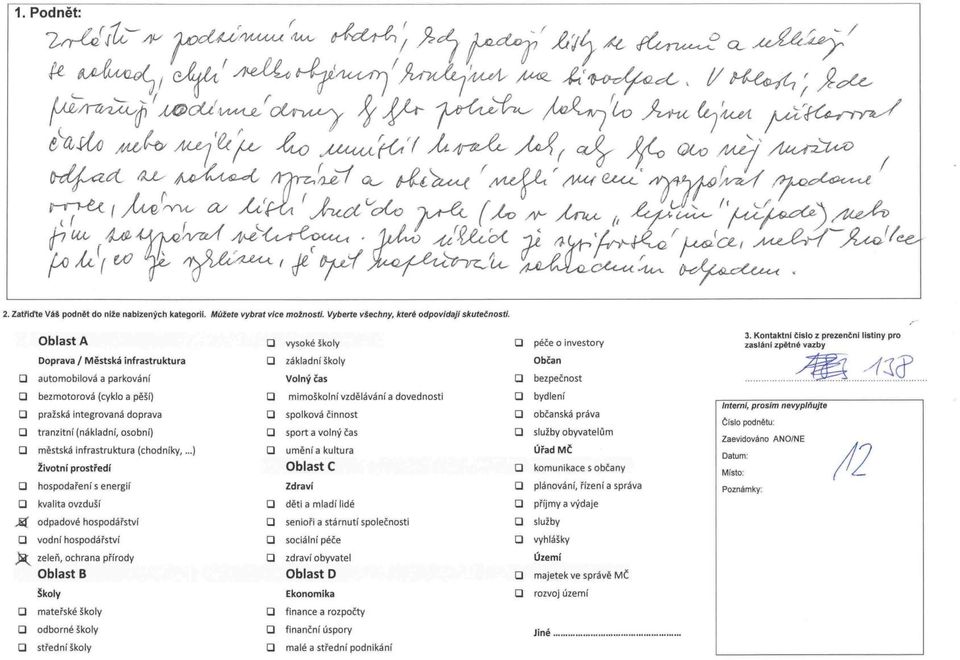 1. Podnět:
Zvláště v podzimním období, kdy padají listy ze stromů a uklízejí
se zahrady, chybí velkoobjemový kontejner na bioodpad. V oblasti, kde
převažují rodinné domy by bylo potřeba takovýto kontejner přistavovat
často nebo nejlépe ho umístit trvale tak, aby bylo do něj možno
odpad ze zahrad vyvážet a občané neměli nucení vysypávat spadané
ovoce, trávu a listí buď do pole (to v tom "lepším" případě) nebo
jím zasypávat větrolam. Jeho úklid je práce, neboť krátce
po té, co je vyklizen, je opět naplňován zahradním odpadem.
2. Zatřiďte Váš podnět do níže nabízených kategorií. Můžete vybrat více možností. Vyberte všechny, které odpovídají skutečnosti.
Oblast A
Doprava / Městská infrastruktura
automobilová a parkování
bezmotorová (cyklo a pěší)
pražská integrovaná doprava
tranzitní (nákladní, osobní)
městská infrastruktura (chodníky, ...)
Životní prostředí
hospodaření s energií
kvalita ovzduší
odpadové hospodářství
vodní hospodářství
zeleň, ochrana přírody
Oblast B
Školy
mateřské školy
odborné školy
střední školy
vysoké školy
základní školy
Volný čas
mimoškolní vzdělávání a dovednosti
spolková činnost
sport a volný čas
umění a kultura
Oblast C
Zdraví
děti a mladí lidé
senioři a stárnutí společnosti
sociální péče
zdraví obyvatel
Oblast D
Ekonomika
finance a rozpočty
finanční úspory
malé a střední podnikání
péče o investory
Občan
bezpečnost
bydlení
občanská práva
služby obyvatelům
Úřad MČ
komunikace s občany
plánování, řízení a správa
příjmy a výdaje
služby
vyhlášky
Území
majetek ve správě MČ
rozvoj území
Jiné ................................................
3. Kontaktní číslo z prezenční listiny pro
zaslání zpětné vazby
138
Interní, prosím nevyplňujte
Číslo podnětu:
Zaevidováno ANO/NE
Datum:
Místo:
Poznámky:
12